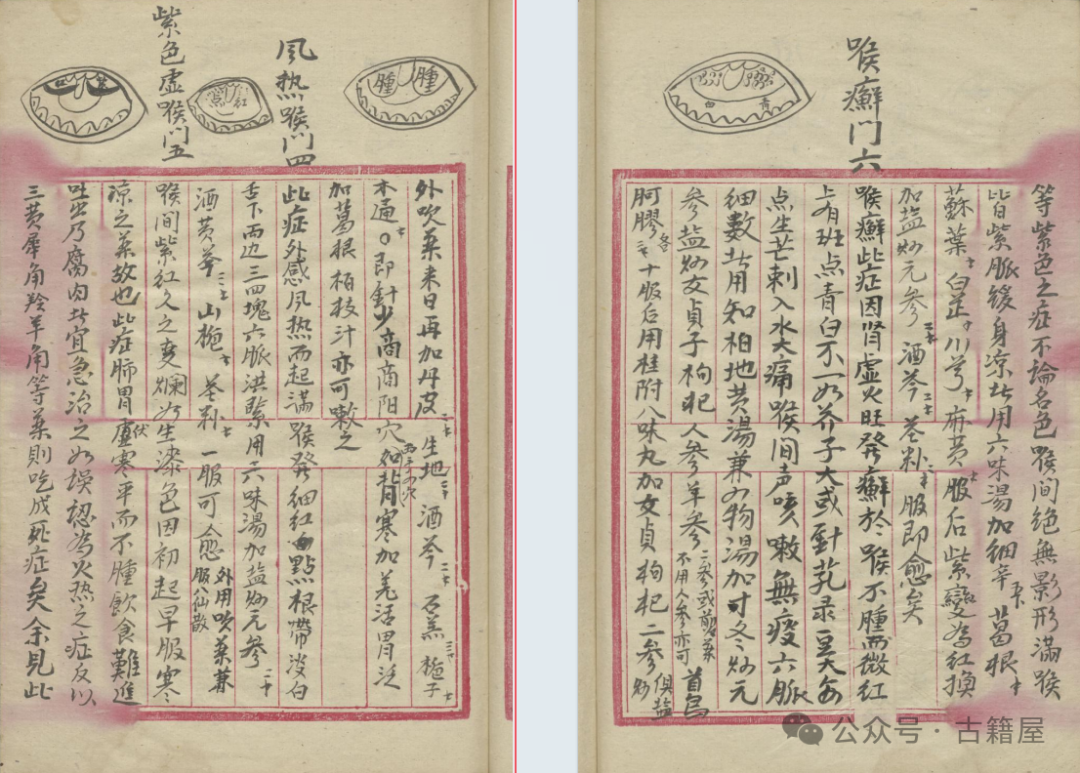 風热喉门四
紫色虚喉门五
腫 腫
外吹薬来日再加丹皮 生地 酒芩 石羔 栀子
本遍○即針少商商阳穴 如背寒加羌活胃泛
加葛根柏枝汁亦可嗽之
此症外感风热而起满喉發细红點根帶淡白
舌下两边三四塊六脈洪緊用六味湯加盐炒元参
酒黄芩 山栀 花粉 一服可愈 外用吹薬兼服八仙散
喉间紫红久之变爛如生漆色因初起早服寒
凉之薬故也此症肺胃虚寒平而不腫飲食難進
吐出乃腐肉此宜急治之如误認為火热之症反以
三黄犀角羚羊角等薬则吃成死症矣余見此
喉癬门六
白 青
等紫色之症不論名色喉间绝無影形滿喉
皆紫脈缓身凉此用六味湯加细辛 葛根
蘇葉 白芷 川芎 麻黄 服后紫變為红換
加盐炒元参 酒芩 花粉 服即愈矣
喉癬此症因肾虚火旺發癬於喉不腫而微红
上有斑点青白不一如芥子大或針孔录豆大每
点生芒刺入水大痛喉间声咳嗽無痰六脈
细數此用知柏地黄湯兼四物湯加寸冬炒元
参盐炒女貞子枸杞 人參 羊參 不用人参亦可 首烏
阿膠各 十服后用桂附八味丸加女貞枸杞二參 俱盐炒
公众号·古籍屋